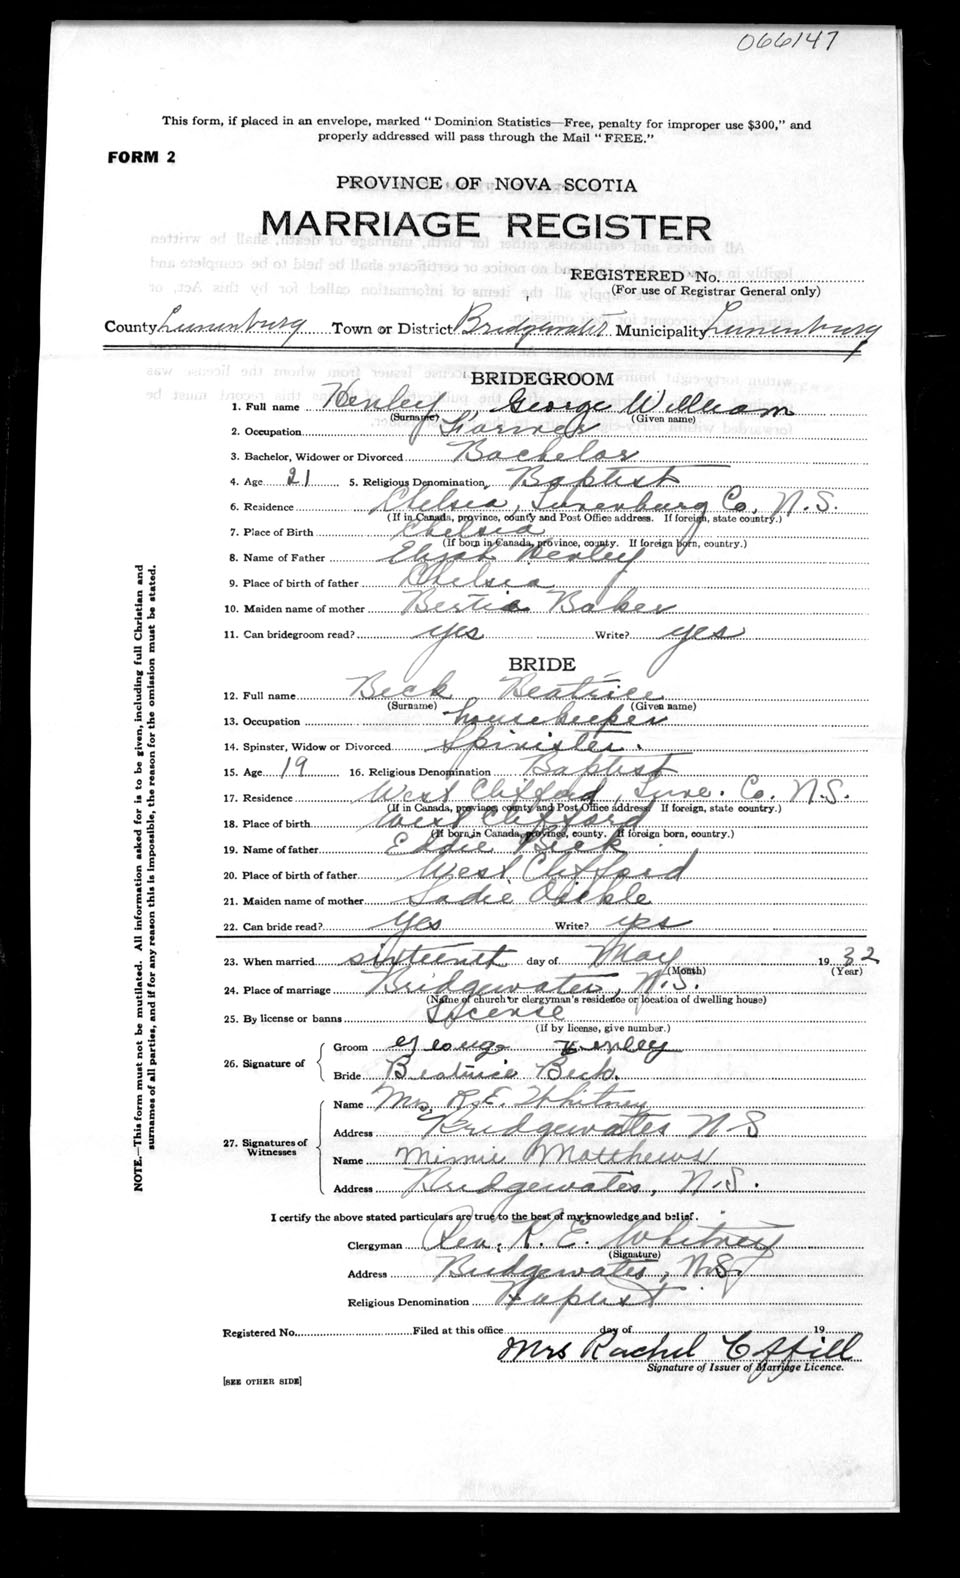 066147
This form, if placed in an envelope, marked "Dominion Statistics—Free, penalty for improper use $300," and
properly addressed will pass through the Mail "FREE."
FORM 2
PROVINCE OF NOVA SCOTIA
MARRIAGE REGISTER
REGISTERED No.
(For use of Registrar General only)
County Lunenburg Town or District Bridgewater Municipality Lunenburg
BRIDEGROOM
1. Full name Henley, George William
(Surname) (Given name)
2. Occupation Farmer
3. Bachelor, Widower or Divorced Bachelor
4. Age 21 5. Religious Denomination Baptist
6. Residence Chelsia, Lunenburg Co, N.S.
(If in Canada, province, county and Post Office address. If foreign, state country.)
7. Place of Birth Chelsia
(If born in Canada, province, county. If foreign born, country.)
8. Name of Father Elijah Henley
9. Place of birth of father Chelsia
10. Maiden name of mother Bertia Baker
11. Can bridegroom read? yes Write? yes
BRIDE
12. Full name Beck, Beatrice
(Surname) (Given name)
13. Occupation housekeeper
14. Spinster, Widow or Divorced Spinister.
15. Age 19 16. Religious Denomination Baptist
17. Residence West Clifford, Lune. Co. N.S.
(If in Canada, province, county and Post Office address. If foreign, state country.)
18. Place of birth West Clifford
(If born in Canada, province, county. If foreign born, country.)
19. Name of father Eddie Beck
20. Place of birth of father West Clifford
21. Maiden name of mother Sadie
22. Can bride read? yes Write? yes
23. When married sixteenth day of May 1932
(Month) (Year)
24. Place of marriage Bridgewater, N.S.
(Name of church or clergyman's residence or location of dwelling house)
25. By license or banns License
(If by license, give number.)
26. Signature of Groom George Henley
Bride Beatrice Beck.
27. Signatures of Witnesses Name Mrs. R. E. Whitney
Address Bridgewater N S
Name Minnie Matthews
Address Bridgewater, N.S.
I certify the above stated particulars are true to the best of my knowledge and belief.
Clergyman Rev. R. E. Whitney
(Signature)
Address Bridgewater, N.S.
Religious Denomination Baptist
Registered No. Filed at this office day of 19
Mrs Rachel C Hill
Signature of Issuer of Marriage Licence.
[SEE OTHER SIDE]
NOTE.—This form must not be mutilated. All information asked for is to be given, including full Christian and
surnames of all parties, and if for any reason this is impossible, the reason for the omission must be stated.